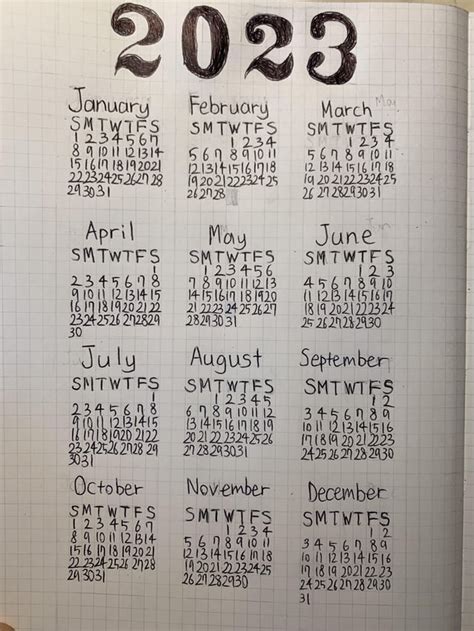 2023
January
S M T W T F S
1 2 3 4 5 6 7
8 9 10 11 12 13 14
15 16 17 18 19 20 21
22 23 24 25 26 27 28
29 30 31
February
S M T W T F S
1 2 3 4
5 6 7 8 9 10 11
12 13 14 15 16 17 18
19 20 21 22 23 24 25
26 27 28
March
May
S M T W T F S
1 2 3 4
5 6 7 8 9 10 11
12 13 14 15 16 17 18
19 20 21 22 23 24 25
26 27 28 29 30 31
April
S M T W T F S
1
2 3 4 5 6 7 8
9 10 11 12 13 14 15
16 17 18 19 20 21 22
23 24 25 26 27 28 29
30
May
S M T W T F S
1 2 3 4 5 6
7 8 9 10 11 12 13
14 15 16 17 18 19 20
21 22 23 24 25 26 27
28 29 30 31
June
S M T W T F S
1 2 3
4 5 6 7 8 9 10
11 12 13 14 15 16 17
18 19 20 21 22 23 24
25 26 27 28 29 30
July
S M T W T F S
1
2 3 4 5 6 7 8
9 10 11 12 13 14 15
16 17 18 19 20 21 22
23 24 25 26 27 28 29
30 31
August
S M T W T F S
1 2 3 4 5
6 7 8 9 10 11 12
13 14 15 16 17 18 19
20 21 22 23 24 25 26
27 28 29 30 31
September
S M T W T F S
1 2
3 4 5 6 7 8 9
10 11 12 13 14 15 16
17 18 19 20 21 22 23
24 25 26 27 28 29 30
October
S M T W T F S
1 2 3 4 5 6 7
8 9 10 11 12 13 14
15 16 17 18 19 20 21
22 23 24 25 26 27 28
29 30 31
November
S M T W T F S
1 2 3 4
5 6 7 8 9 10 11
12 13 14 15 16 17 18
19 20 21 22 23 24 25
26 27 28 29 30
December
S M T W T F S
1 2
3 4 5 6 7 8 9
10 11 12 13 14 15 16
17 18 19 20 21 22 23
24 25 26 27 28 29 30
31